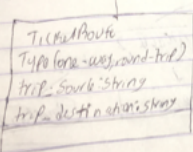 TicketRoute
Type (one-way, round-trip)
trip_source: string
trip_destination: string